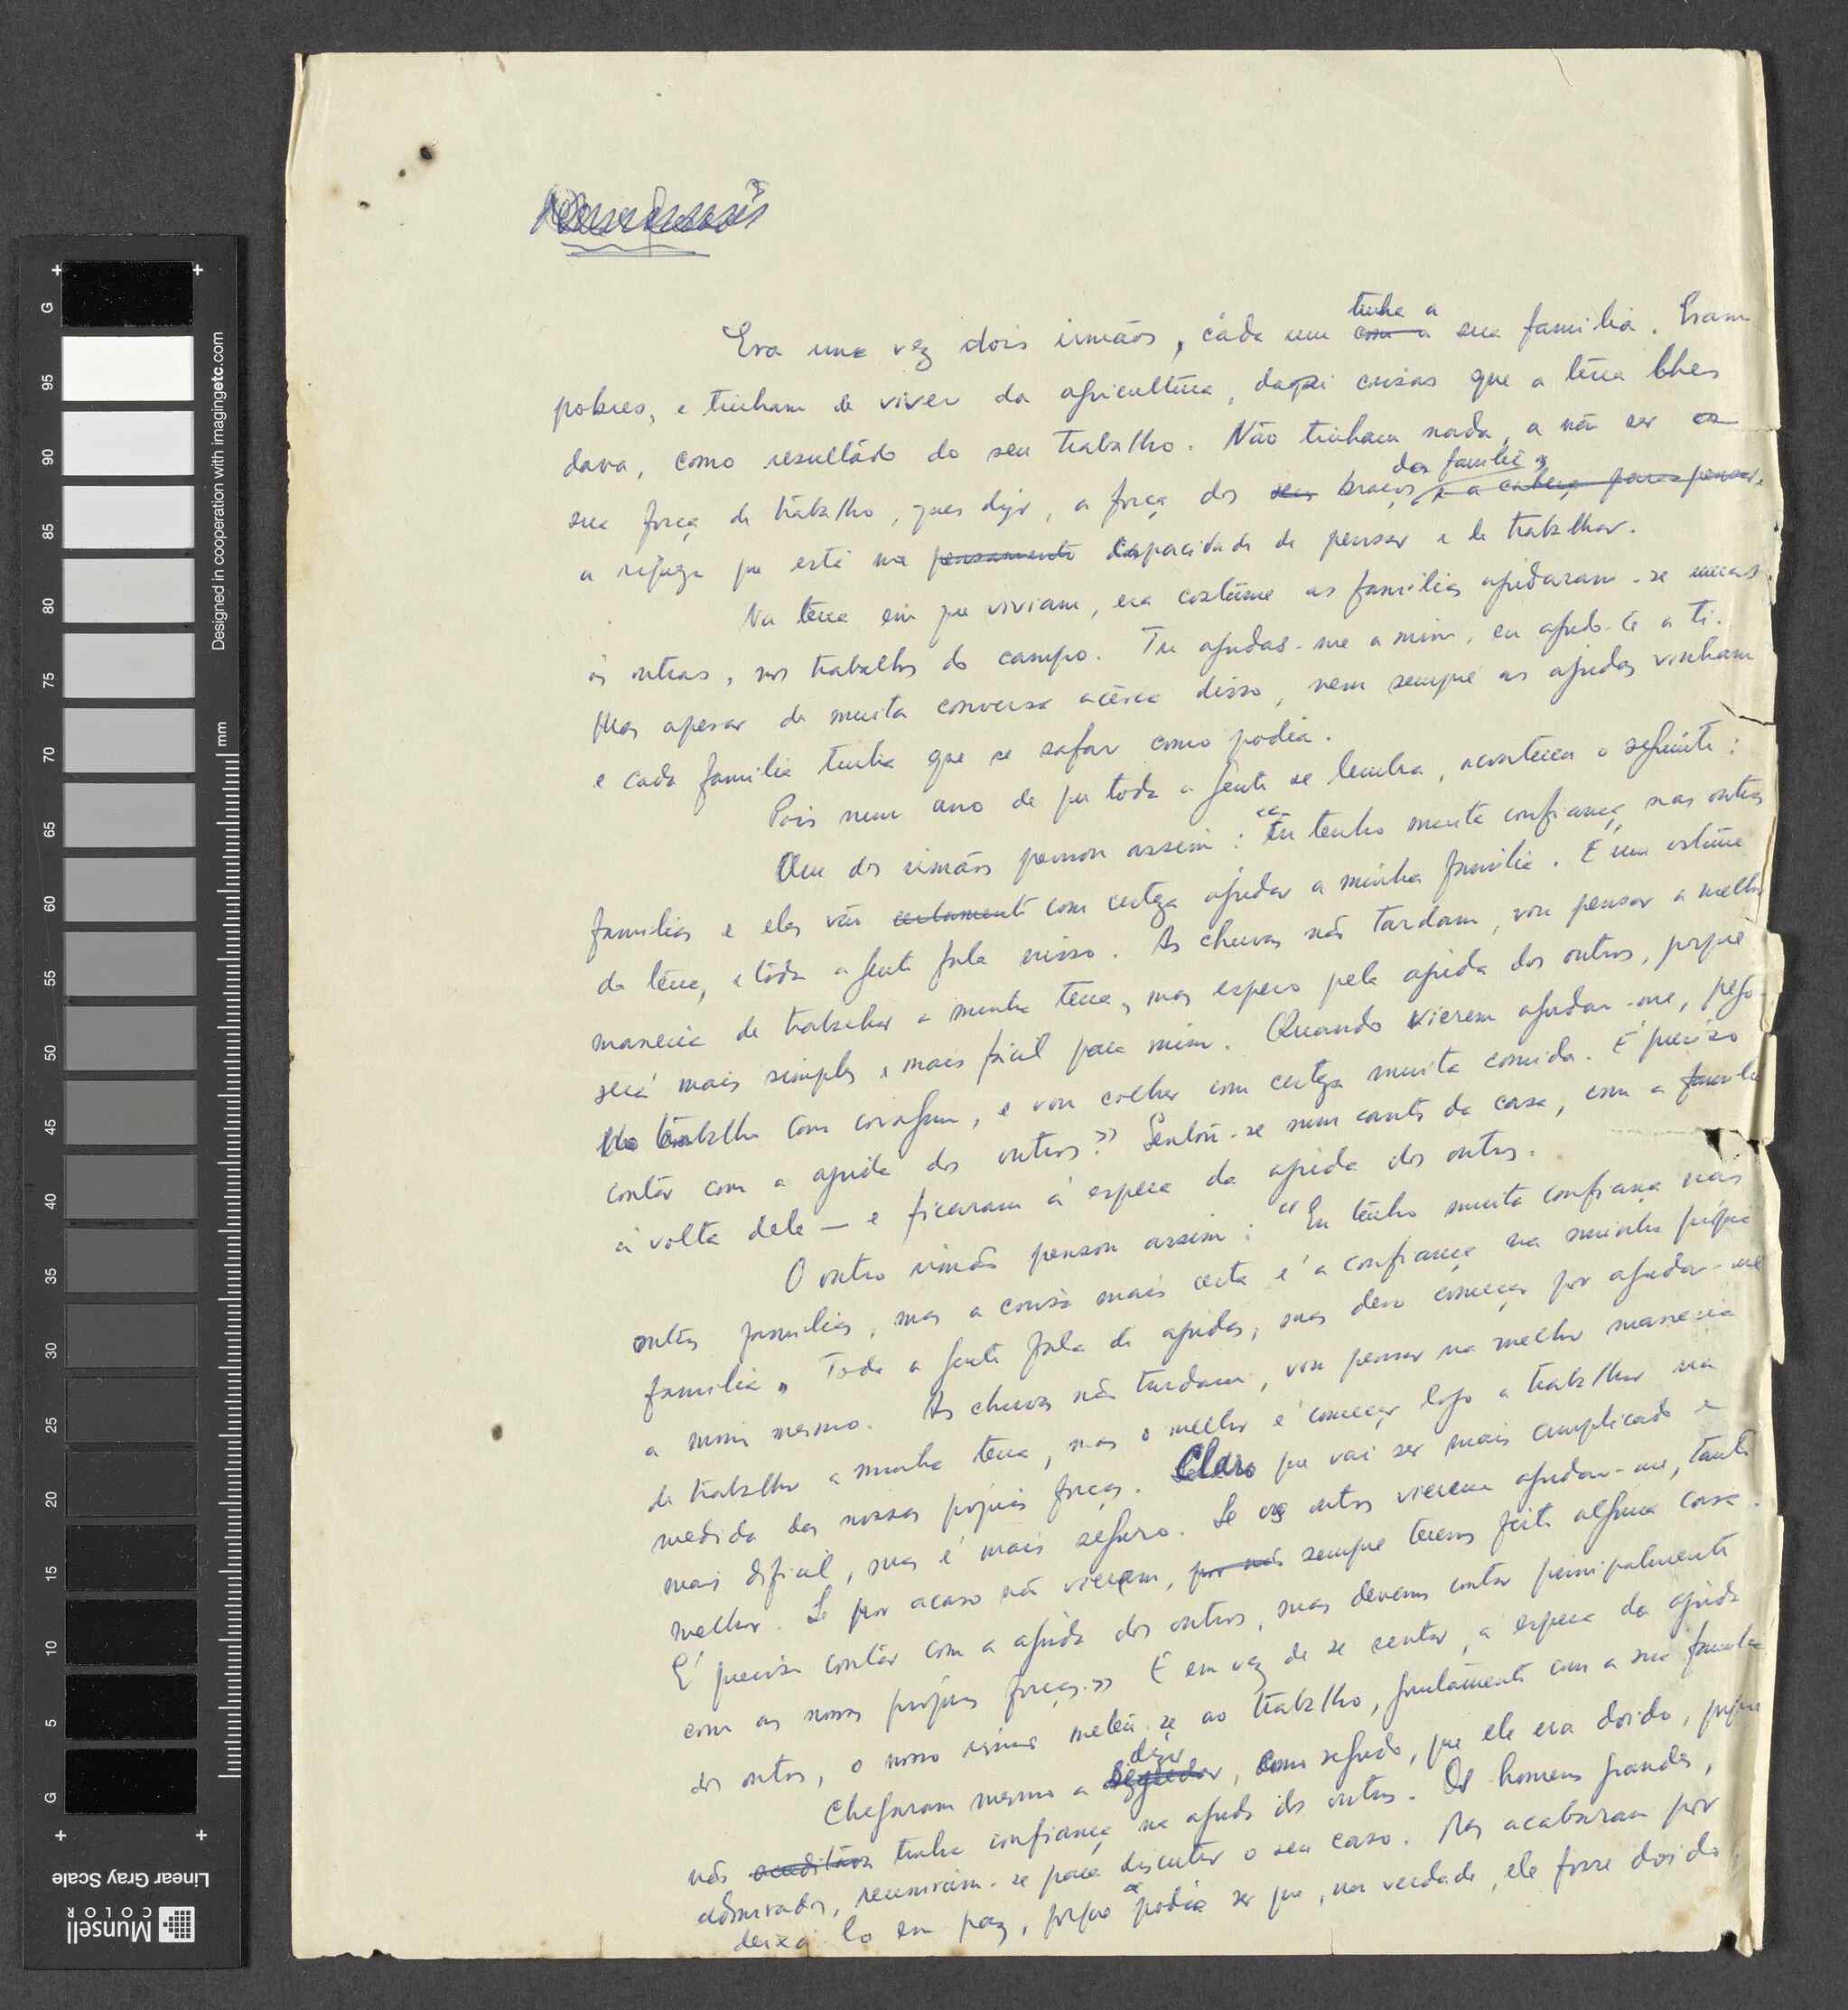 Era uma vez dois irmãos, cada um com a tinha a sua familia. Eram
pobres, e tinham de viver da agricultura, daqui coisas que a terra lhes
dava, como resultado do seu trabalho. Não tinham nada, a não ser
sua força de trabalho, quer dizer, a força dos seus braços e a cabeça para pensar, das familias
a riqueza que está na pensamento capacidade de pensar e de trabalhar.
Na terra em que viviam, era costume as familias ajudaram-se umas
ás outras, nos trabalhos do campo. Tu ajudas-me a mim, eu ajudo-te a ti.
Mas apesar de muita conversa acerca disso, nem sempre as ajudas vinham
e cada familia tinha que se safar como podia.
Pois num ano de que toda a gente se lembra, aconteceu o seguinte:
Um dos irmãos pensou assim: "Eu tenho muita confiança nas outras
familias e elas vão certamente com certeza ajudar a minha familia. É um costume
da terra, e toda a gente fala nisso. As chuvas não tardam, vou pensar a melhor
maneira de trabalhar a minha terra, mas espero pela ajuda dos outros, porque
será mais simples e mais fácil para mim. Quando vierem ajudar-me, pego
no trabalho com coragem, e vou colher com certeza muita comida. É preciso
contar com a ajuda dos outros." Sentou-se num canto da casa, com a familia
á volta dele — e ficaram á espera da ajuda dos outros.
O outro irmão pensou assim: "Eu tenho muita confiança nas
outras familias, mas a coisa mais certa é a confiança na minha própria
familia. Toda a gente fala de ajudas, mas devo começar por ajudar-me
a mim mesmo. As chuvas não tardam, vou pensar na melhor maneira
de trabalhar a minha terra, mas o melhor é começar logo a trabalhar na
medida das nossas próprias forças. Claro que vai ser mais complicado e
mais dificil, mas é mais seguro. Se os outros vierem ajudar-me, tanto
melhor. Se por acaso não vierem, por nós sempre teremos feito alguma coisa.
É preciso contar com a ajuda dos outros, mas devemos contar principalmente
com as nossas próprias forças." E em vez de se sentar, á espera da ajuda
dos outros, o nosso irmão meteu-se ao trabalho, juntamente com a sua familia
Chegaram mesmo a dizer, em segredo, que ele era doido, porque
não acreditava tinha confiança na ajuda dos outros. Os homens grandes,
admirados, reuniram-se para discutir o seu caso. Mas acabaram por
deixá-lo em paz, porque podia ser que, na verdade, ele fosse doido.
Munsell
COLOR
Linear Gray Scale
Designed in cooperation with imagingetc.com
mm
G
95
90
85
80
75
70
65
60
55
50
45
40
35
30
25
20
15
10
5
G